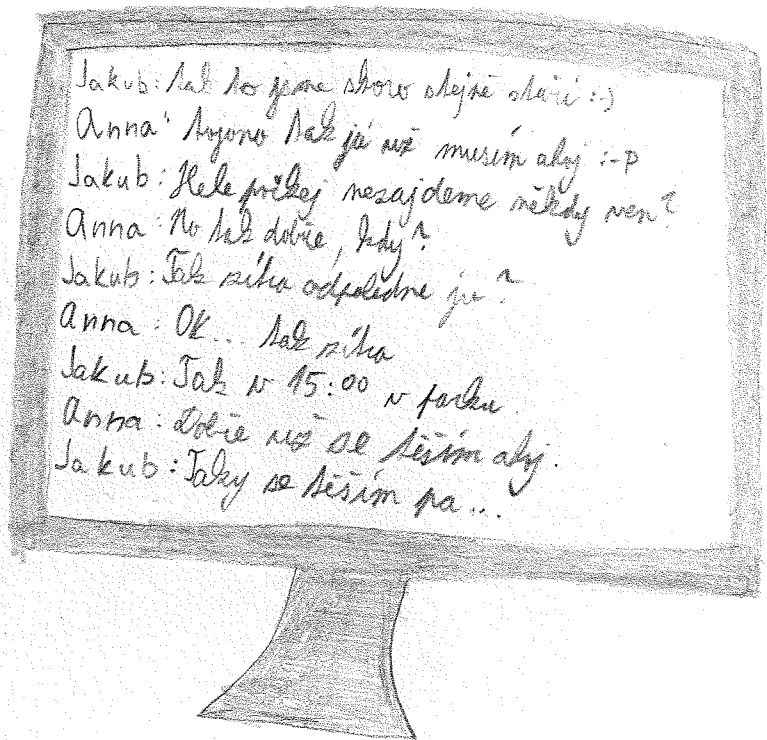 Jakub: tak to jsme skoro stejně staří :-)
Anna: tojono tak já už musím ahoj :-P
Jakub: Hele počkej nezajdeme někdy ven?
Anna: No tak dobře, kdy?
Jakub: Tak zítra odpoledne jo?
Anna: OK... tak zítra
Jakub: Tak v 15:00 v parku
Anna: Dobře už se těším ahoj.
Jakub: Taky se těším pa...